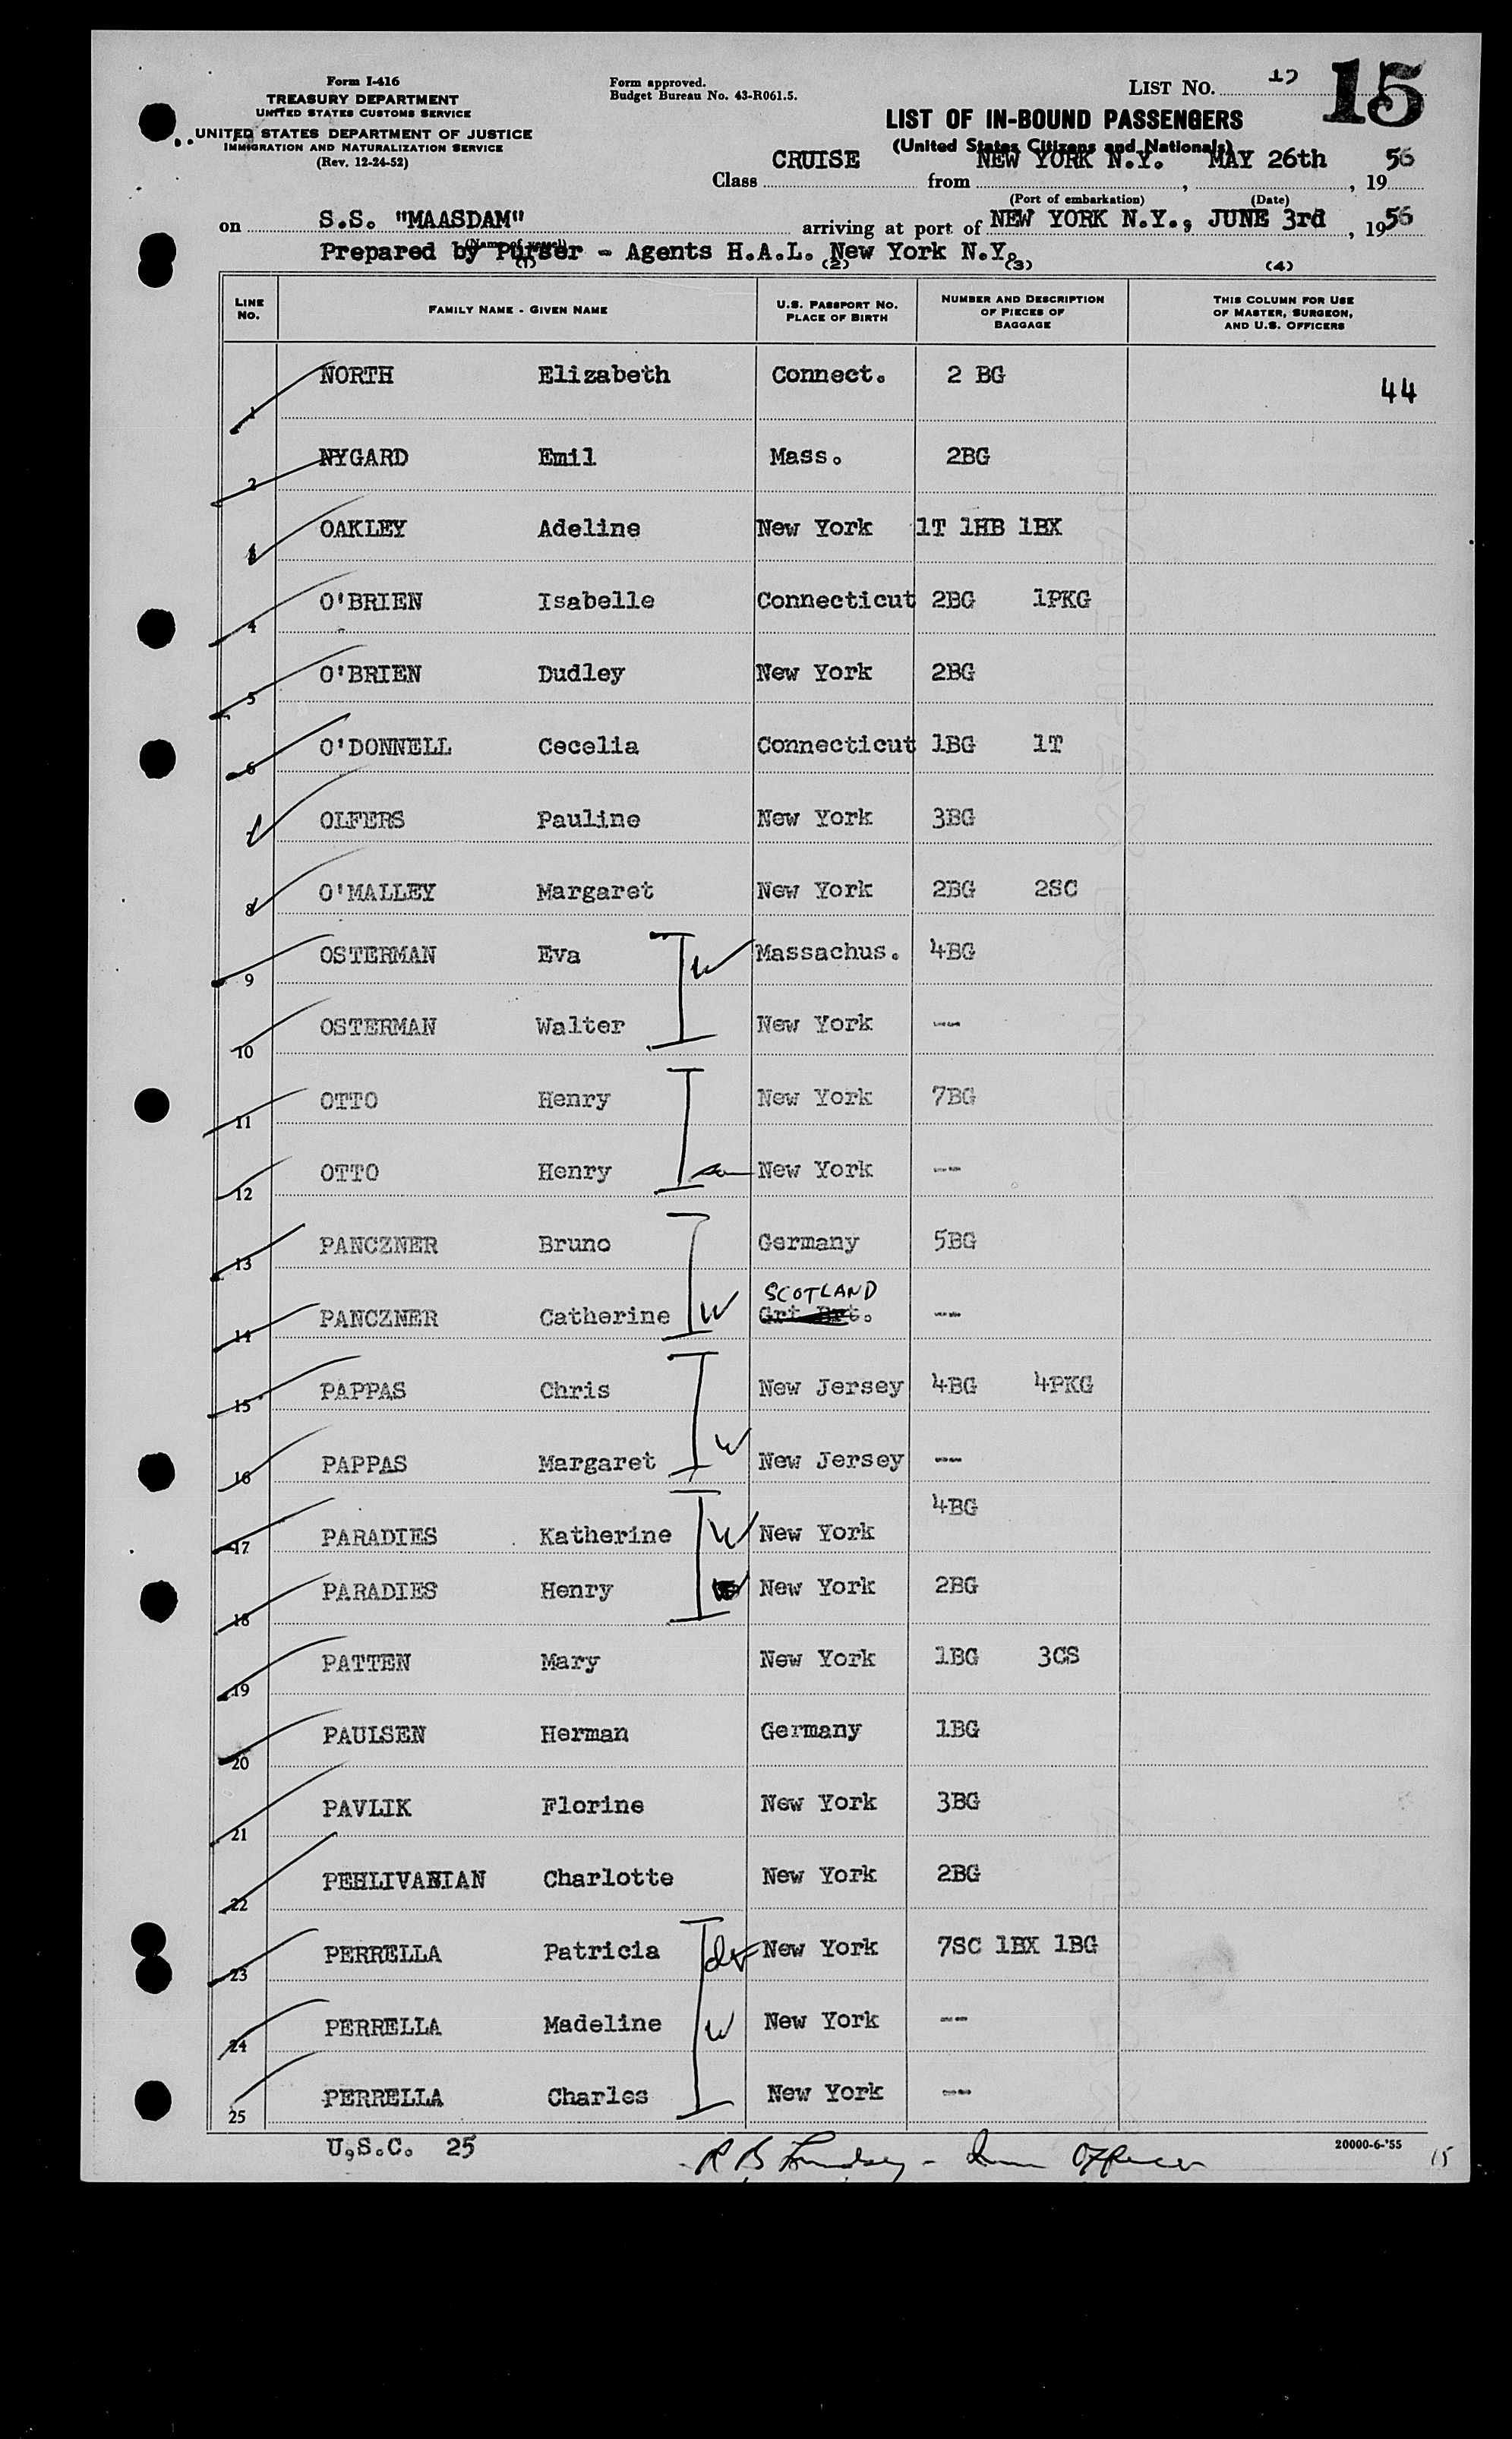 Form I-416
TREASURY DEPARTMENT
UNITED STATES CUSTOMS SERVICE
UNITED STATES DEPARTMENT OF JUSTICE
IMMIGRATION AND NATURALIZATION SERVICE
(Rev. 12-24-52)
Form approved.
Budget Bureau No. 43-R061.5.
LIST No. 15 15
LIST OF IN-BOUND PASSENGERS
(United States Citizens and Nationals)
Class CRUISE from NEW YORK N.Y. , MAY 26th , 19 56
(Port of embarkation) (Date)
on S.S. "MAASDAM" arriving at port of NEW YORK N.Y., JUNE 3rd , 1956
(Name of vessel)
Prepared by Purser - Agents H.A.L. New York N.Y.
(1) (2) (3) (4)
LINE No. FAMILY NAME - GIVEN NAME U.S. PASSPORT No. PLACE OF BIRTH NUMBER AND DESCRIPTION OF PIECES OF BAGGAGE THIS COLUMN FOR USE OF MASTER, SURGEON, AND U.S. OFFICERS
1 NORTH Elizabeth Connect. 2 BG 44
2 NYGARD Emil Mass. 2BG
3 OAKLEY Adeline New York 1T 1HB 1BX
4 O'BRIEN Isabelle Connecticut 2BG 1PKG
5 O'BRIEN Dudley New York 2BG
6 O'DONNELL Cecelia Connecticut 1BG 1T
7 OLFERS Pauline New York 3BG
8 O'MALLEY Margaret New York 2BG 2SC
9 OSTERMAN Eva W Massachus. 4BG
10 OSTERMAN Walter New York --
11 OTTO Henry New York 7BG
12 OTTO Henry New York --
13 PANCZNER Bruno Germany 5BG
SCOTLAND
14 PANCZNER Catherine W Grt Brt. --
15 PAPPAS Chris New Jersey 4BG 4PKG
16 PAPPAS Margaret W New Jersey --
17 PARADIES Katherine W New York 4BG
18 PARADIES Henry New York 2BG
19 PATTEN Mary New York 1BG 3CS
20 PAULSEN Herman Germany 1BG
21 PAVLIK Florine New York 3BG
22 PEHLIVANIAN Charlotte New York 2BG
23 PERRELLA Patricia New York 7SC 1BX 1BG
24 PERRELLA Madeline W New York --
25 PERRELLA Charles New York --
U.S.C. 25
R B Lindsey - Imm Officer
20000-6-'55
15